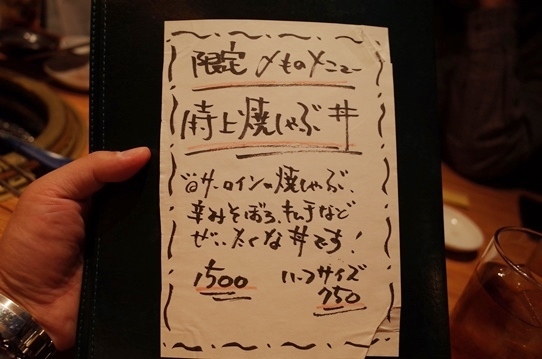 限定 〆ものメニュー
特上焼しゃぶ丼
サーロインの焼しゃぶ、
辛みそぼろ、キムチなど
ぜいたくな丼です!
1500 ハーフサイズ
750